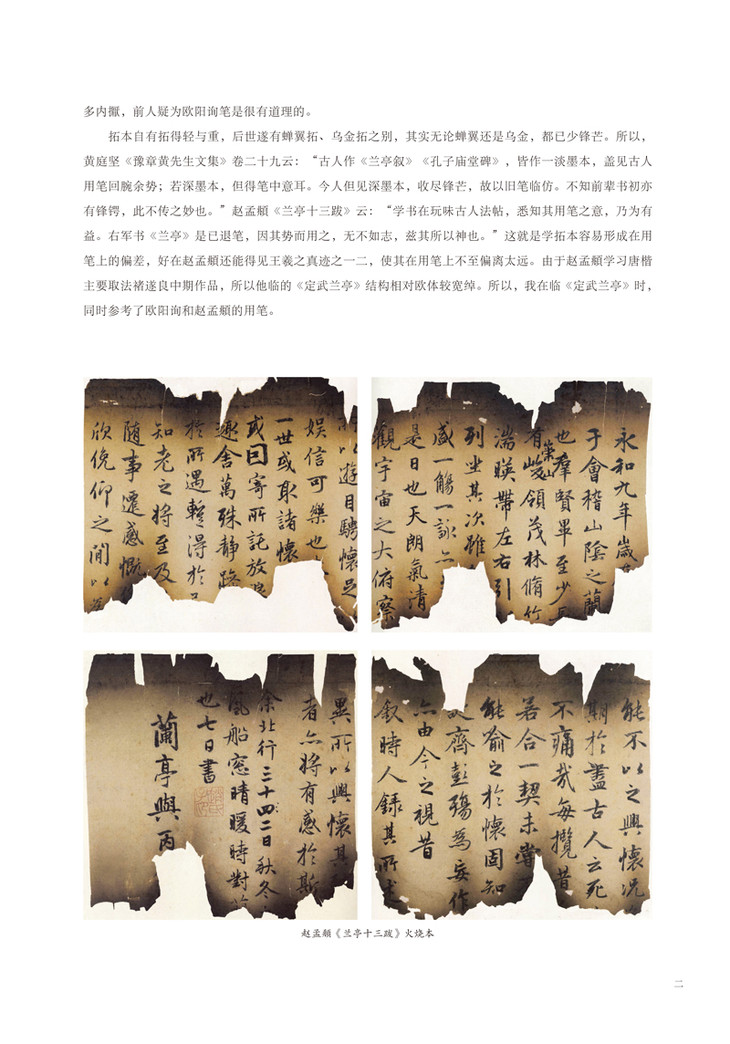 多内擫，前人疑为欧阳询笔是很有道理的。
拓本自有拓得轻与重，后世遂有蝉翼拓、乌金拓之别，其实无论蝉翼还是乌金，都已少锋芒。所以，
黄庭坚《豫章黄先生文集》卷二十九云：“古人作《兰亭叙》《孔子庙堂碑》，皆作一淡墨本，盖见古人
用笔回腕余势；若深墨本，但得笔中意耳。今人但见深墨本，收尽锋芒，故以旧笔临仿。不知前辈书初亦
有锋锷，此不传之妙也。”赵孟頫《兰亭十三跋》云：“学书在玩味古人法帖，悉知其用笔之意，乃为有
益。右军书《兰亭》是已退笔，因其势而用之，无不如志，兹其所以神也。”这就是学拓本容易形成在用
笔上的偏差，好在赵孟頫还能得见王羲之真迹之一二，使其在用笔上不至偏离太远。由于赵孟頫学习唐楷
主要取法褚遂良中期作品，所以他临的《定武兰亭》结构相对欧体较宽绰。所以，我在临《定武兰亭》时，
同时参考了欧阳询和赵孟頫的用笔。
永和九年歲
于會稽山陰之蘭
也群賢畢至少長
有崇山峻領茂林脩竹
湍暎帶左右引
列坐其次雖
盛一觴一詠亦
是日也天朗氣清
觀宇宙之大俯察
所以遊目騁懷足
娱信可樂也
一世或取諸懷
或因寄所託放
趣舍萬殊静躁
於所遇輒得於
知老之將至及
随事遷感慨
欣俛仰之閒以
能不以之興懷況
期於盡古人云死
不痛哉每攬昔
若合一契未嘗
能喻之於懷固知
齊彭殤為妄作
亦由今之視昔
叙時人錄其所述
異所以興懷其
者亦將有感於斯
余北行三十二日秋冬
風船窓晴暖時對
也七日書
蘭亭與丙
赵孟頫《兰亭十三跋》火烧本
二